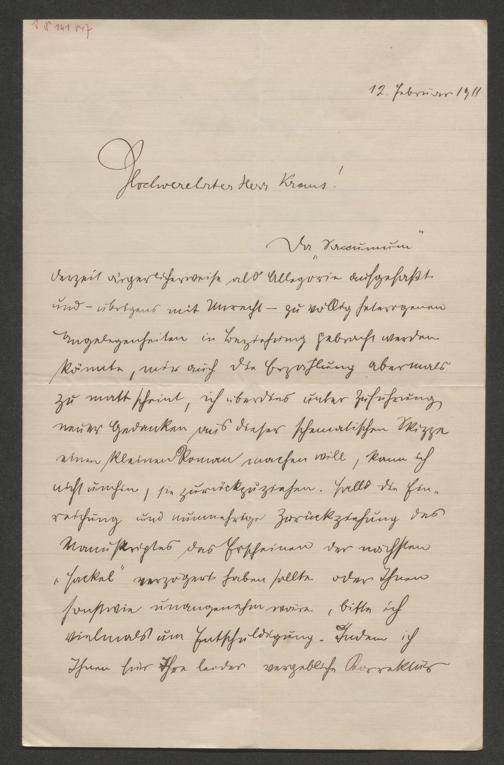 12. Februar 1911
Hochverehrter Herr Kraus!
Da „Saccumum"
derzeit ärgerlicherweise als Allegorie aufgefaßt
und – übrigens mit Unrecht – zu völlig heterogenen
Angelegenheiten in Beziehung gebracht werden
könnte, mir auch die Erzählung abermals
zu matt scheint, ich überdies unter Zuführung
neuer Gedanken aus dieser schematischen Skizze
einen kleinen Roman machen will, kann ich
nicht umhin, sie zurückzuziehen. Falls die Ein-
reichung und nunmehrige Zurückziehung des
Manuskriptes das Erscheinen der nächsten
„Fackel" verzögert haben sollte oder Ihnen
sonstwie unangenehm wäre, bitte ich
vielmals um Entschuldigung. Indem ich
Ihnen für Ihre leider vergebliche Korrektur